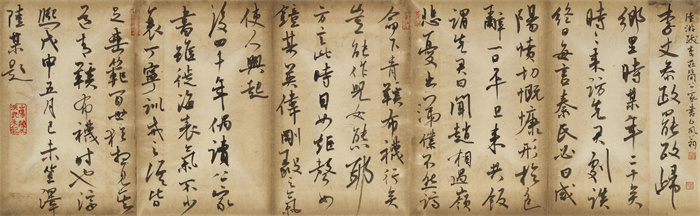 陸游跋李莊簡公家書
李丈參政罷政歸
鄉里時某年二十矣
時時來訪先君劇談
終日每言秦氏必曰咸
陽憤切慨慷形於色
辭一日平旦來共飯
謂先君曰聞趙相過嶺
悲憂出涕僕不然謫
命下青鞵布襪行矣
豈能作兒女態耶
方言此時目如炬聲如
鐘其英偉剛毅之氣
使人興起
後四十年偶讀公家
書雖徙海表氣不少
衰丁寧訓戒之語皆
足垂範百世猶想見其
道青鞵布襪時也淳
熙戊申五月己未笠澤
陸某題